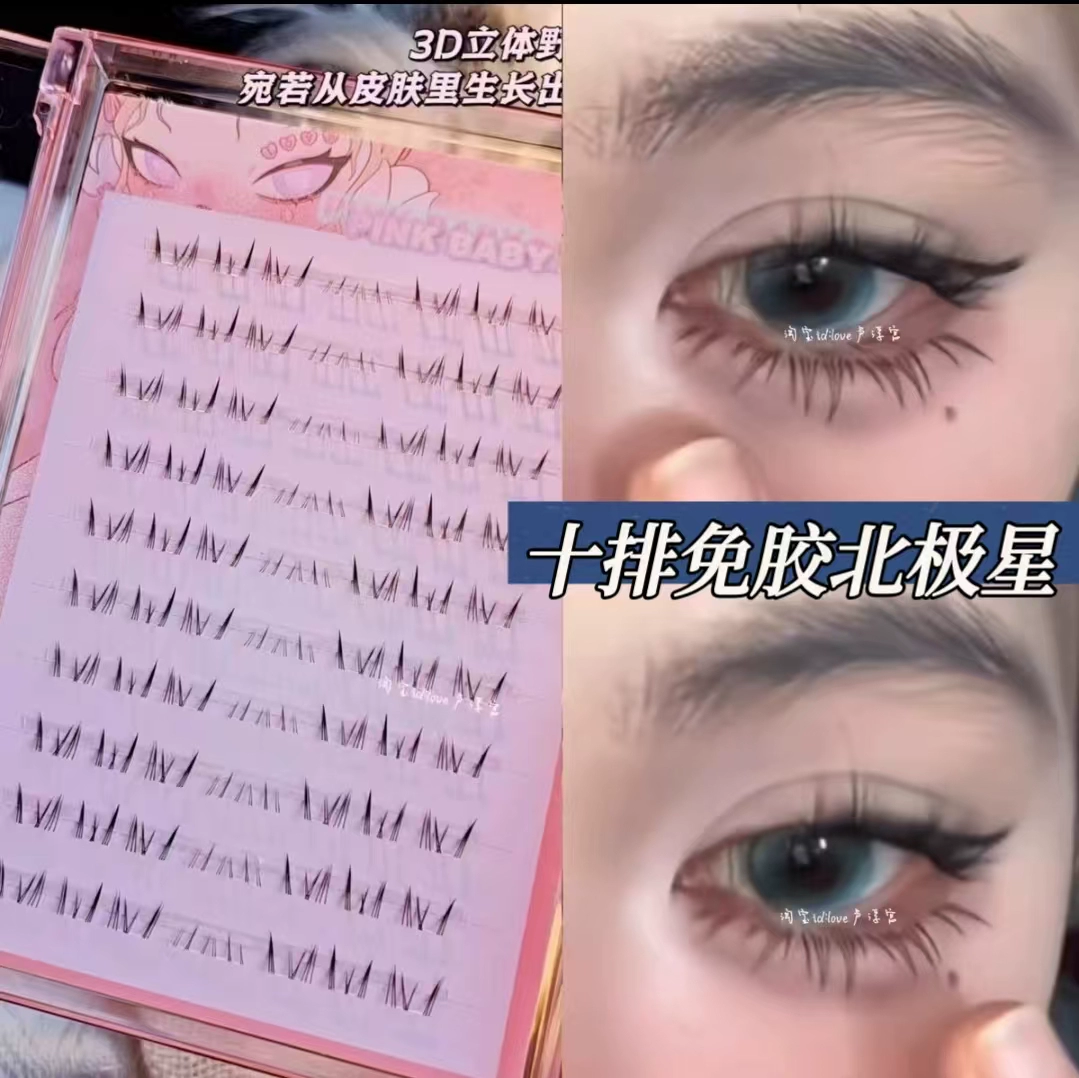 3D立体野
宛若从皮肤里生长出
PINK BABY
淘宝id:love卢淳宫
十排免胶北极星
淘宝id:love卢淳宫
淘宝id:love卢淳宫